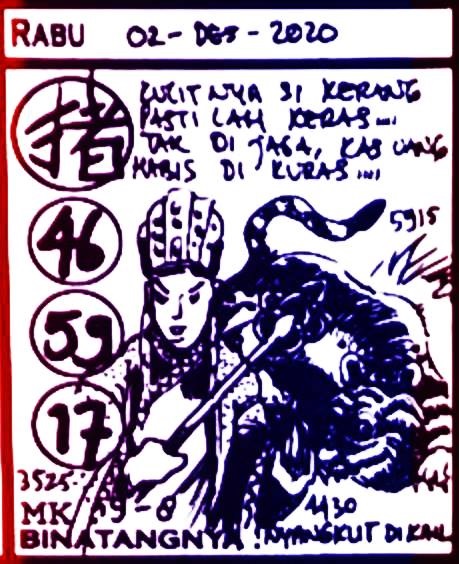 RABU 02-DES-2020
KULITNYA SI KERANG
PASTI LAH KERAS...
TAK DI JAGA, KAS UANG
HABIS DI KURAS...
猪
46
5915
59
17
3525
MK 9-8
4430
BINATANGNYA! NYANGKUT DI KAIL